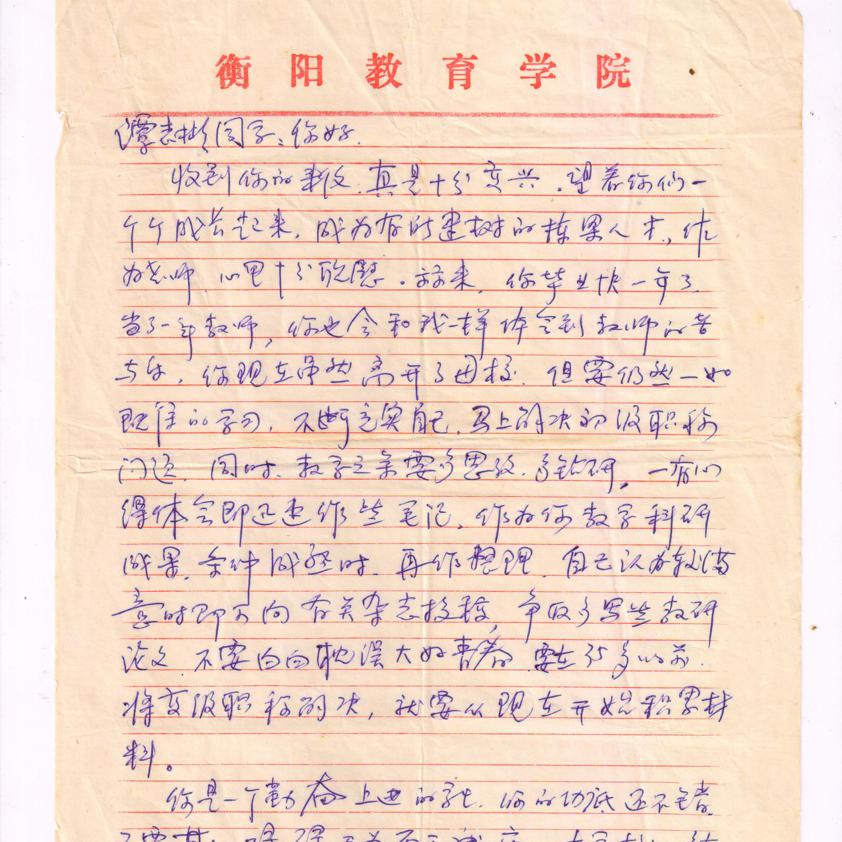 衡阳教育学院
谭志彬同学：你好.
收到你的来信，真是十分高兴．望着你们一
个个成长起来，成为有所建树的栋梁人才，作
为老师，心里十分欣慰．算来，你毕业快一年了.
当了一年教师，你也会和我一样体会到教师的苦
与乐，你现在虽然离开了母校，但要仍然一如
既往的学习，不断充实自己，马上解决初级职称
问题，同时，教学之余要多思考，多钻研，一有心
得体会即迅速作些笔记，作为你教学科研
成果，条件成熟时，再作整理，自己认为较满
意时即可向有关杂志投稿，争取多写些教研
论文，不要白白耽误大好青春，要在35岁以前，
将高级职称解决，就要从现在开始积累材
料。
你是一个勤奋上进的学生，你的功底还不错，